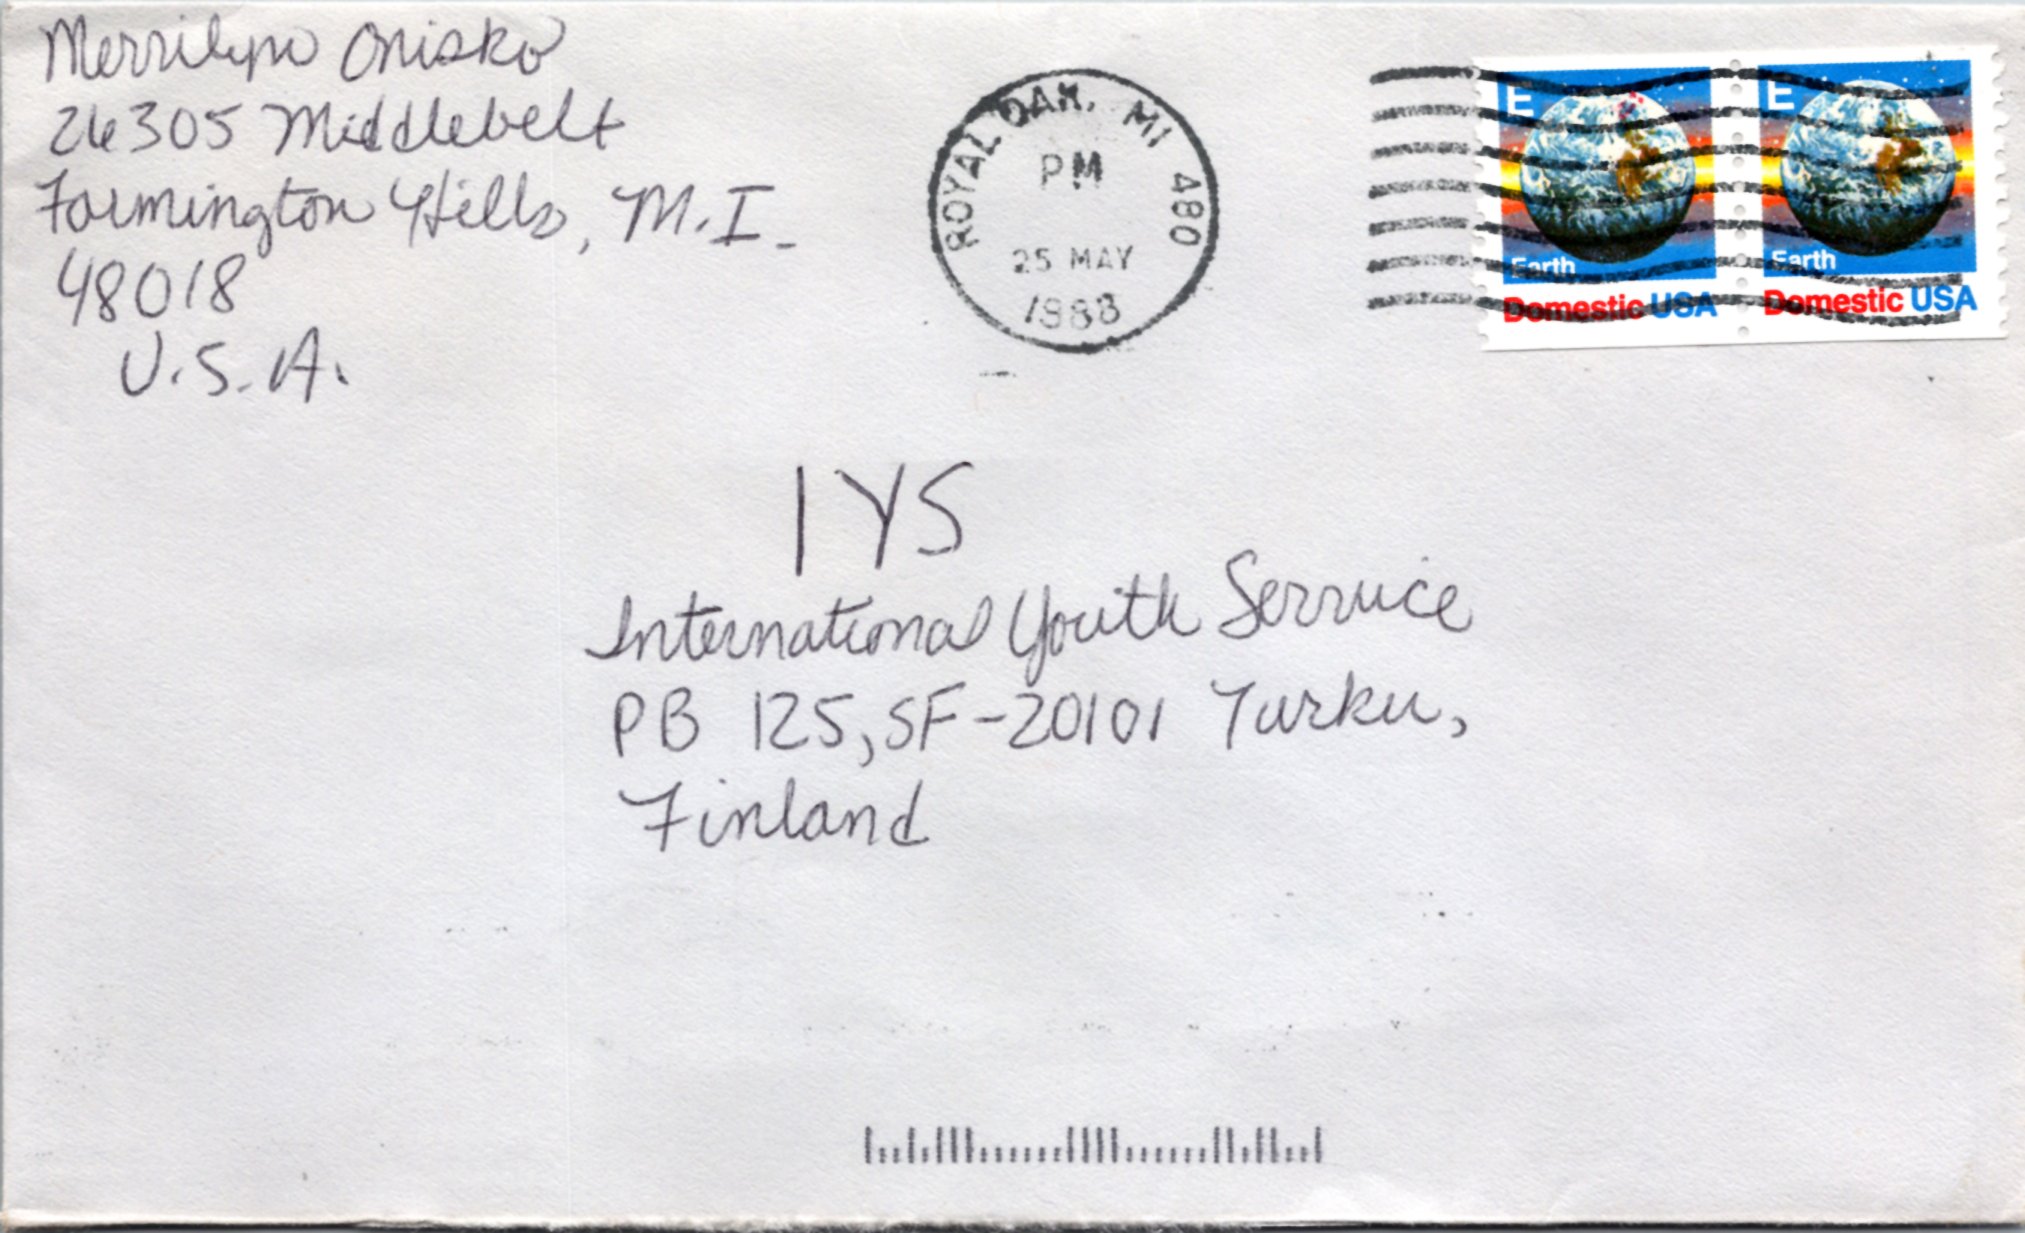 Merrilyn Onisko
26305 Middlebelt
Farmington Hills, M.I.
48018
U.S.A.
ROYAL OAK, MI 480
PM
25 MAY
1988
E
Earth
Domestic USA
E
Earth
Domestic USA
IYS
International Youth Service
PB 125, SF-20101 Turku,
Finland